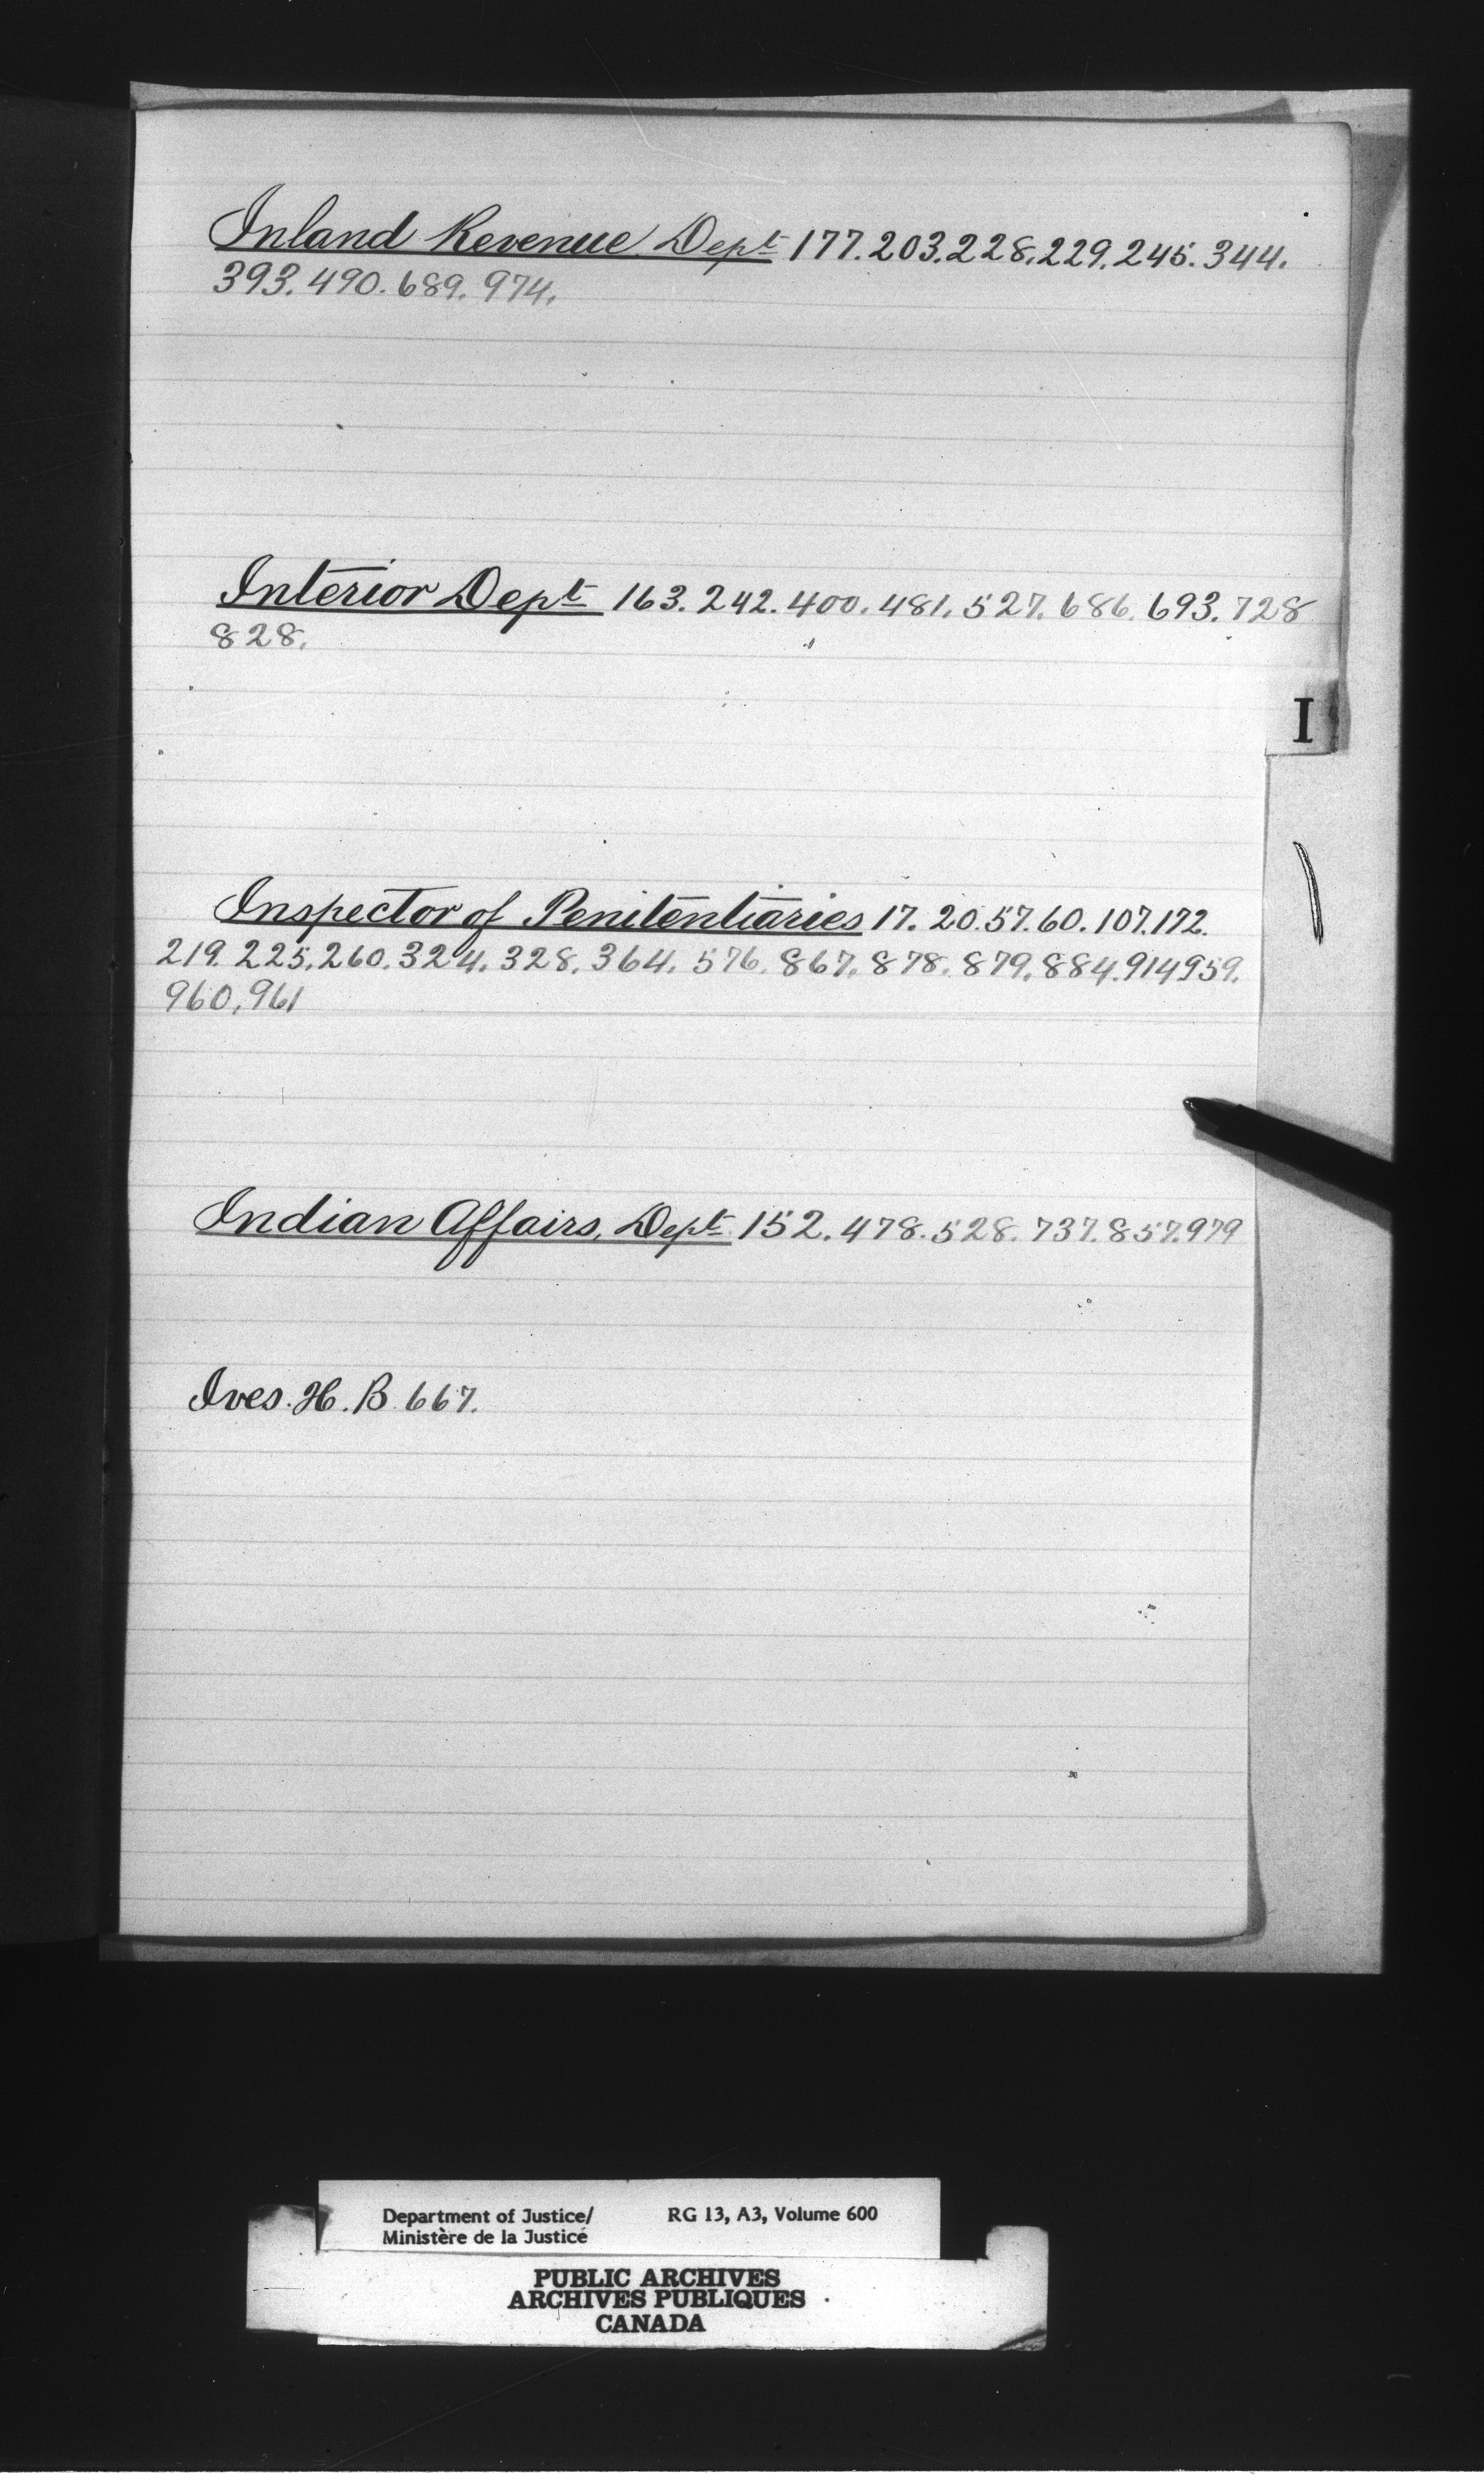 Inland Revenue Dept 177. 203. 228. 229. 245. 344.
393. 490. 689. 974.
Interior Dept 163. 242. 400. 481. 527. 686. 693. 728
828.
I
Inspector of Penitentiaries 17. 20. 57. 60. 107. 172.
219. 225. 260. 324. 328. 364. 576. 867. 878. 879. 884. 914 959.
960, 961
Indian Affairs, Dept 152. 478. 528. 737. 857. 979
Ives. H. B. 667.
Department of Justice/ RG 13, A3, Volume 600
Ministère de la Justice
PUBLIC ARCHIVES
ARCHIVES PUBLIQUES
CANADA